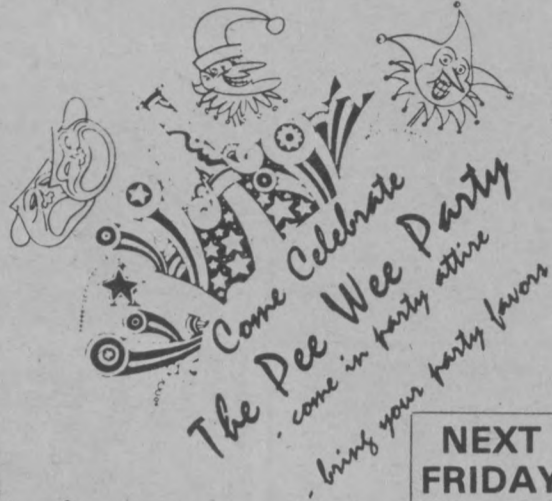 Come Celebrate
The Pee Wee Party
- come in party attire
- bring your party favors
NEXT
FRIDAY